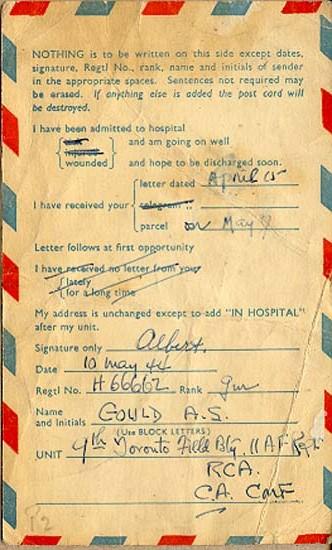 NOTHING is to be written on this side except dates,
signature, Regtl No., rank, name and initials of sender
in the appropriate spaces. Sentences not required may
be erased. If anything else is added the post card will
be destroyed.
I have been admitted to hospital
sick
injured
wounded
and am going on well
and hope to be discharged soon.
letter dated April 15
I have received your telegram ,,
parcel on May 9
Letter follows at first opportunity
I have received no letter from you
lately
for a long time
My address is unchanged except to add "IN HOSPITAL"
after my unit.
Signature only Albert.
Date 10 May 44
Regtl No. H 66662 Rank Gnr
Name
and Initials GOULD A.S.
(Use BLOCK LETTERS)
UNIT 9th Toronto Field Bty, 11 A F
RCA.
C.A. CMF
12